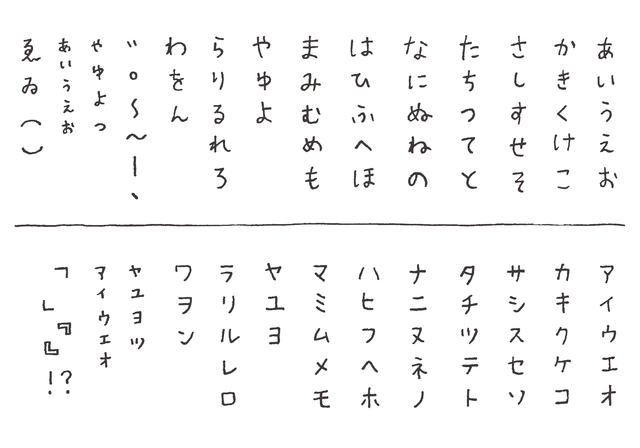 あいうえお
かきくけこ
さしすせそ
たちつてと
なにぬねの
はひふへほ
まみむめも
やゆよ
らりるれろ
わをん
゛゜〜～ー、
ゃゅょっ
ぁぃぅぇぉ
ゑゐ（）
アイウエオ
カキクケコ
サシスセソ
タチツテト
ナニヌネノ
ハヒフヘホ
マミムメモ
ヤユヨ
ラリルレロ
ワヲン
ャュョッ
ァィゥェォ
「」『』!?